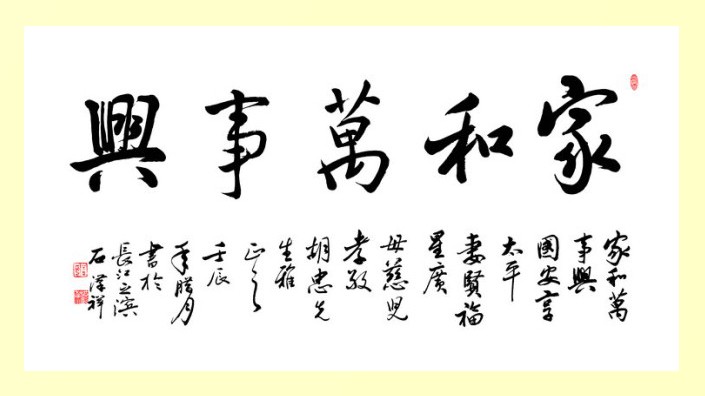 家和萬事興
家和萬
事興
國安享
太平
妻賢福
星廣
母慈兒
孝敬
胡忠先
生雅
正之
壬辰
年腊月
書於
長江之濱
石澤祥